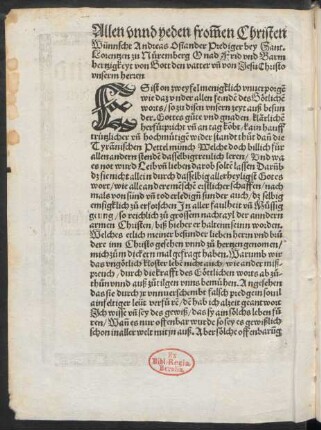 Allen vnnd yeden fromen Christen
Wünscht Andreas Osiander Prediger bey Sant
Lorentzen zu Nüremberg Gnad Frid vnd Barm
hertzigkeyt von Gott den vatter vñ von Jesu Christo
vnserm herren
ES ist on zweyfel menigklich vnuerporgẽ
wie da wider allen feinde des Götliche
worts / so zu disen vnsern zeyt auß besun
der Gottes güte vnd gnaden klärliche
herfür pricht vñ an tag kõbt / kain hauff
trützlicher vñ hochmütiger wider standt thů dañ die
Tyrãnischen Pettelmünch Welche doch billich für
allen andern stende dasselbig treulich leren / Vnd wa
es not wurd Leib vñ leben darob solte lassen Darüb
dz sie nicht allein durch dasselbig aller heyligst Gotes
wort / wie alle andere mẽsche erstlicher schaffen / nach
mals von sünd vñ tod erledigũ sunder auch / dz selbig
ernsigklich zů erforschen In aller faulheit vñ Müssig
ggung / so reichlich zů grossem nachtayl der anndern
armen Christen / biß hieher erhalten seinn worden.
Welches etlich meiner besunder lieben herrn vnd brü
dere inn Christo gesehen vnnd zů hertzen genomen /
mich zům dickern mal gefragt haben. Warumb wie
das vngötlich kloster lebẽ nicht auch / wie ander miß-
preuch / durch die krafft des Götlichen worts ab zů-
thůn vnnd auß zů tilgen vnns bemühen. Angesehen
das sie durch jr vnnuerschembt falsch predgenn souil
ainfeltiger leüt verfůrẽ / dẽ hab ich alzeit geantwort
Ich wisse vñ sey des gewiß / das sy am sölchs leben fü
ren / Wañ es nur offenbar wurde so sey es gewißlich
schon in aller welt nutzn auß. Aber sölche offenbarũg
Ex
Bibl. Regia
Berolin.